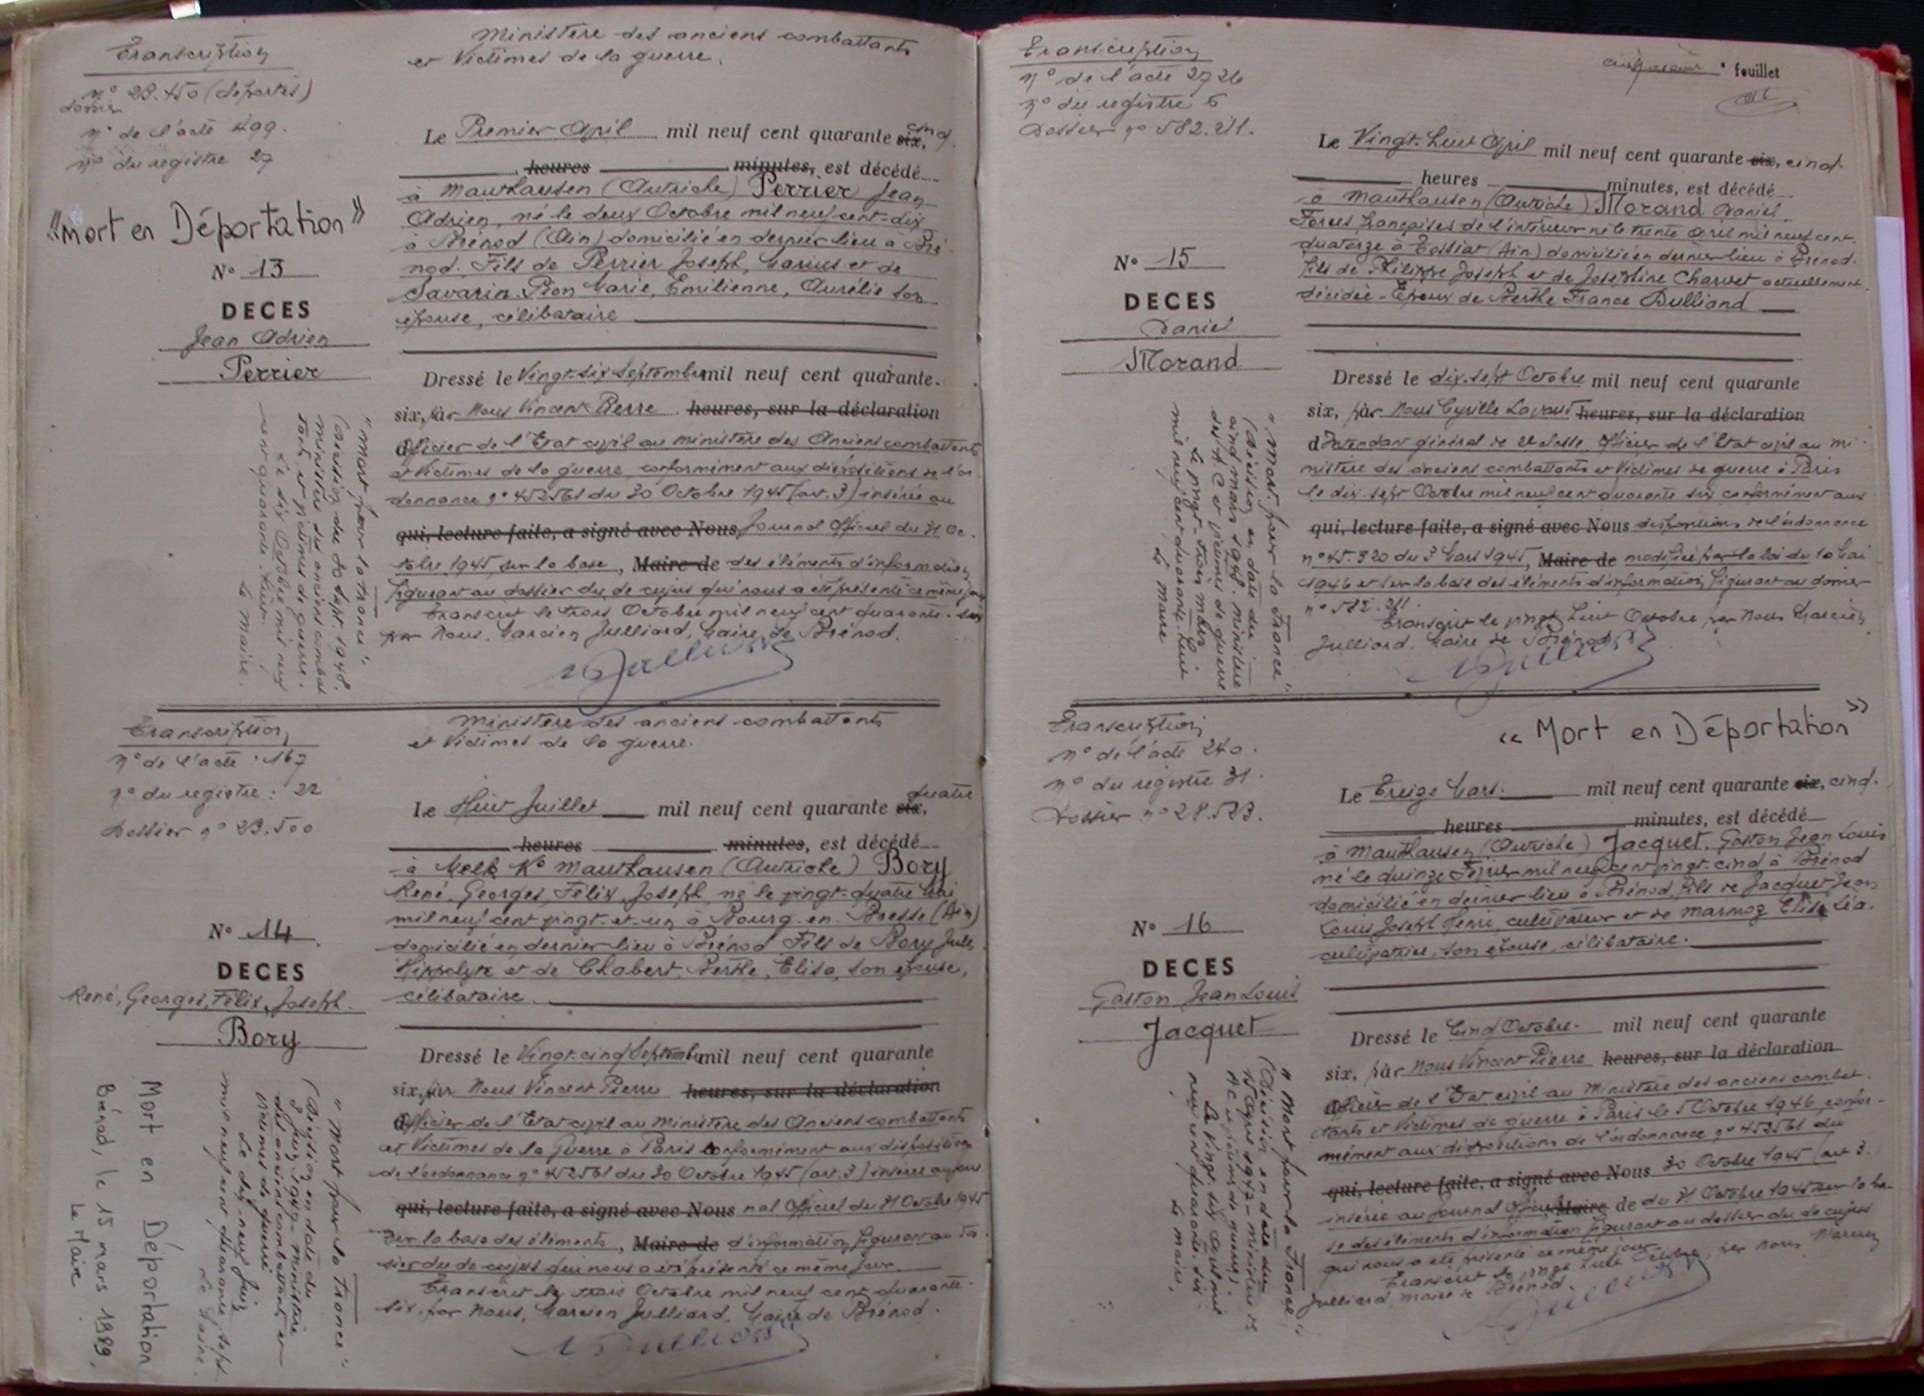 Transcription
n° 23.450 (déportés)
dossier
n° de l'acte 499.
n° du registre 27
"Mort en Déportation"
N° 13
DECES
Jean Adrien
Perrier
"Mort pour la France"
(décision du 20 Sept. 1948.
ministère des anciens combat
tants et victimes de guerre.
Le six Octobre mil neuf
cent quarante huit.
Le Maire.
Ministère des anciens combattants
et Victimes de la guerre.
Le Premier Avril mil neuf cent quarante six, cinq.
heures minutes, est décédé
à Mauthausen (Autriche) Perrier Jean
Adrien, né le deux Octobre mil neuf cent dix
à Brénod (Ain) domicilié en dernier lieu à Bré-
nod. Fils de Perrier Joseph, Marius et de
Savarin-Pion Marie, Emilienne, Aurélie son
épouse, célibataire
Dressé le Vingt-six Septembre mil neuf cent quarante-
six, par Nous Vincent Pierre heures, sur la déclaration
Officier de l'Etat civil au ministère des Anciens combattants
et Victimes de la guerre, conformément aux dispositions de l'or-
donnance n° 452561 du 30 Octobre 1945 (art. 3) insérée au
qui, lecture faite, a signé avec Nous Journal Officiel du 31 Oc-
tobre 1945 sur la base, Maire de des éléments d'information
figurant au dossier du de cujus qui nous a été présenté ce même jour
Transcrit le trois Octobre mil neuf cent quarante-six
par Nous, Marcien Julliard, Maire de Brénod.
Transcription
n° de l'acte : 167
n° du registre : 22
Dossier n° 23.500
N° 14
DECES
René, Georges, Félix, Joseph.
Bory
"Mort pour la France"
(Décision en date du
Juin 1947 - ministère
des anciens combattants et
victimes de guerre
Le dix-neuf Juin
mil neuf cent quarante sept
Le Maire.
Mort en Déportation
Brénod, le 15 mars 1989,
Le Maire
Ministère des anciens combattants
et Victimes de la guerre.
Le Huit Juillet mil neuf cent quarante six, quatre
heures minutes, est décédé
à Melk Ko Mauthausen (Autriche) Bory
René, Georges, Félix, Joseph, né le vingt-quatre Mai
mil neuf cent vingt-et-un à Bourg-en-Bresse (Ain)
domicilié en dernier lieu à Brénod Fils de Bory Jules
Hippolyte et de Chabert Berthe, Elisa, son épouse,
célibataire.
Dressé le Vingt-cinq Septembre mil neuf cent quarante
six, par Nous Vincent Pierre heures, sur la déclaration
Officier de l'Etat civil au Ministère des Anciens combattants
et Victimes de la Guerre à Paris conformément aux dispositions
de l'ordonnance n° 452561 du 30 Octobre 1945 (art. 3) insérée au jour
qui, lecture faite, a signé avec Nous nal Officiel du 31 Octobre 1945
sur la base des éléments, Maire de d'information figurant au dos-
sier du de cujus qui nous a été présenté ce même jour.
Transcrit le trois Octobre mil neuf cent quarante-
six par Nous, Marcien Julliard, Maire de Brénod.
feuillet
Transcription
n° de l'acte 2726
n° du registre 6
Dossier n° 582.211.
N° 15
DECES
Daniel
Morand
"Mort pour la France"
(décision en date du
cinq mars 1948. ministère
des A.C et victimes de guerre
Le vingt-trois mars
mil neuf cent quarante huit
Le Maire
Le Vingt-huit Avril mil neuf cent quarante six, cinq.
heures minutes, est décédé
à Mauthausen (Autriche) Morand Daniel.
Forces françaises de l'intérieur né le trente Avril mil neuf cent
quatorze à Tossiat (Ain) domicilié en dernier lieu à Brénod.
fils de Philippe Joseph et de Joséphine Charvet actuellement
décédée - Epoux de Berthe France Dulliand
Dressé le dix-sept Octobre mil neuf cent quarante
six, par Nous Cyrille heures, sur la déclaration
d Intendant général de 2e classe, Officier de l'Etat civil au mi-
nistère des anciens combattants et Victimes de guerre à Paris
le dix-sept Octobre mil neuf cent quarante six conformément aux
qui, lecture faite, a signé avec Nous dispositions de l'ordonnance
n° 45.320 du 3 Mars 1945, Maire de modifiée par la loi du 10 Mai
1946 et sur la base des éléments d'information figurant au dossier
n° 582.211.
Transcrit le vingt huit Octobre par Nous Marcien
Julliard. Maire de Brénod.
Transcription
n° de l'acte 240.
n° du registre 31.
Dossier n° 28.523.
N° 16
DECES
Gaston Jean Louis
Jacquet
"Mort pour la France"
(Décision en date du
1947 - ministère des
A C et victimes de guerre)
Le vingt six avril mil
neuf cent quarante
Le Maire,
"Mort en Déportation"
Le Treize Mars. mil neuf cent quarante six, cinq.
heures minutes, est décédé
à Mauthausen (Autriche) Jacquet, Gaston Jean Louis
né le quinze Février mil neuf cent vingt-cinq à Brénod
domicilié en dernier lieu à Brénod fils de Jacquet Jean
Louis Joseph Henri, cultivateur et de Marmoz Elise Léa.
cultivatrice, son épouse, célibataire.
Dressé le Cinq Octobre. mil neuf cent quarante
six, par Nous Vincent Pierre heures, sur la déclaration
Officier de l'Etat civil au Ministère des anciens combat-
tants et Victimes de guerre à Paris le 5 Octobre 1946 confor-
mément aux dispositions de l'ordonnance n° 452561 du
qui, lecture faite, a signé avec Nous 30 Octobre 1945 (art 3.)
insérée au Journal Officiel Maire de du 31 Octobre 1945 sur la ba-
se des éléments d'information figurant au dossier du de cujus
qui nous a été présenté ce même jour.
Transcrit le vingt huit Octobre, par Nous Marcien
Julliard, maire de Brénod.